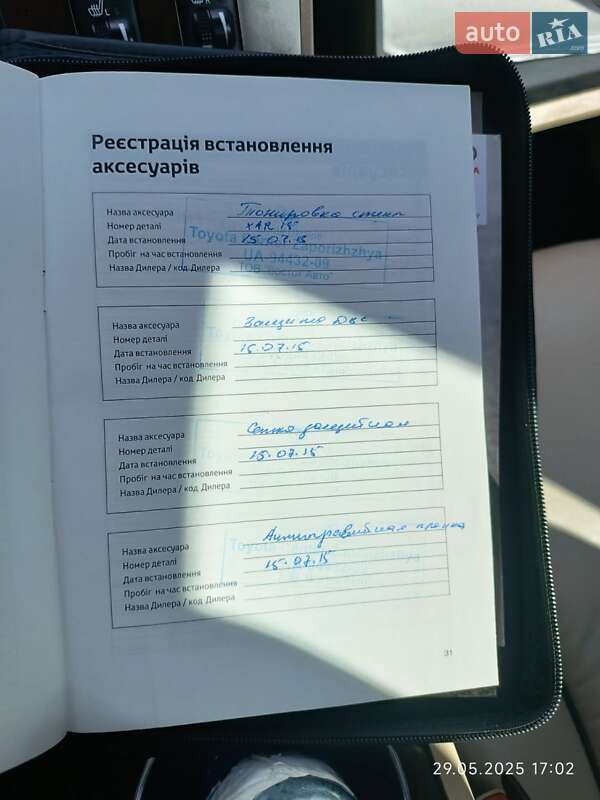 auto RIA
.com
Реєстрація встановлення
аксесуарів
Назва аксесуара Тонировка стекл
Номер деталі XAR 15
Дата встановлення 15.07.15
Пробіг на час встановлення
Назва Дилера / код Дилера
Toyota Zaporizhzhya
UA-94432-09
Назва аксесуара Защита двс
Номер деталі
Дата встановлення 15.07.15
Пробіг на час встановлення
Назва Дилера / код Дилера
Назва аксесуара Сетка защитная
Номер деталі
Дата встановлення 15.07.15
Пробіг на час встановлення
Назва Дилера / код Дилера
Назва аксесуара Антигравийная пленка
Номер деталі
Дата встановлення 15.07.15
Пробіг на час встановлення
Назва Дилера / код Дилера
31
29.05.2025 17:02